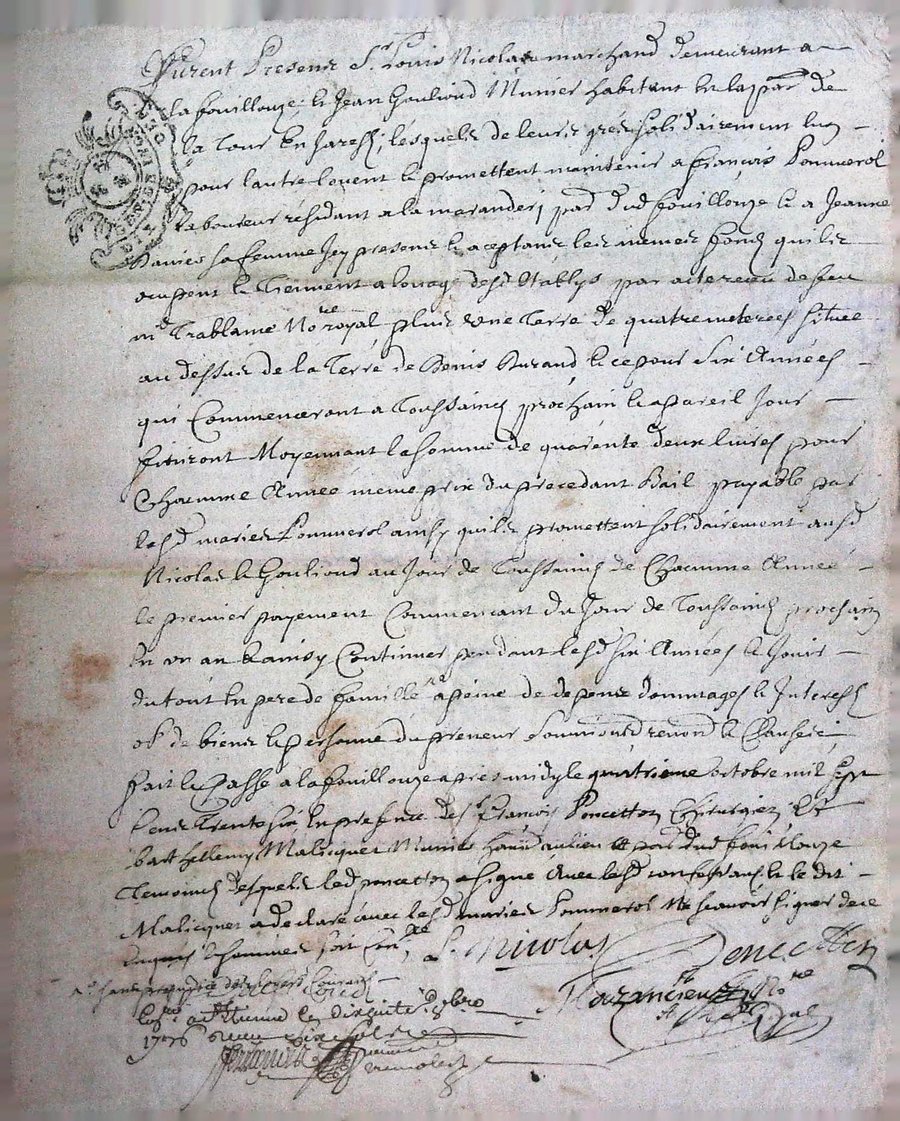 Furent Presens Sr. Louis Nicolas marchand demeurant a
la fouillouze, & Jean Gouliond Munier habitant en la parr de
la Tour En Jarest, lesquels de leurs grés solidairement lun
pour lautre louent & promettent maintenir a françois Pommerol
laboureur résidant a la marandery parr dud fouillouze & a Jeanne
sa femme Icy presens & aceptans les mêmes fonds quils
ocupent & Tiennent a louage desd Etablys par acte receu de feu
me Trablaine Nore royal plus une Terre de quatre meterées située
au dessus de la Terre de Denis Durand & ce pour Six Années
qui Commenceront a Toussaincts prochain & a pareil Jour
finiront Moyennant la somme de quarente deux livres pour
Chacunne Année même prix du precedant Bail payable par
lesd mariés Pommerol ainsy quils promettent solidairement ausd
Nicolas & Gouliond au Jour de Toussaincts de Chacunne Année
le premier payement Commencant du Jour de Toussaincts prochain
En un an & ainsy Continuer pendant lesd six Années & Jouir
du tout En pere de famille a peine de depens dommages & Interests
obf de biens & personne du preneur Soumions renond & Clauses
fait & Passé a la fouillouze apres midy le quatrieme octobre mil sept
Cens Trente six En presence de sr françois Poncetton Chirurgien Et
barthellemy Malicquet Munier dud fouillouze
Temoins desquels led poncetton a signé Avec lesd & le dit
Malicquet a declaré avec lesd mariés Pommerol Ne scavoir signer de ce
Enquis & sommés
L. Nicolas Poncetton
sans prejudice
a St Etienne le dixhuite 8bre
1736 receu six sols